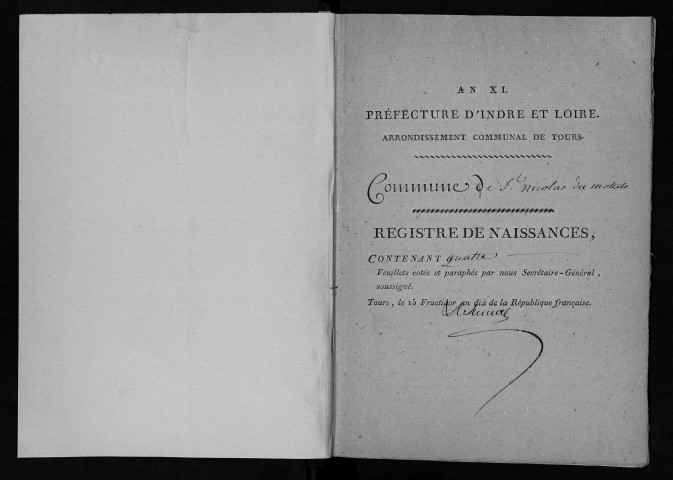 AN XI.
PRÉFECTURE D'INDRE ET LOIRE.
ARRONDISSEMENT COMMUNAL DE TOURS.
Commune de St. nicolas des motets
REGISTRE DE NAISSANCES,
CONTENANT quatre
Feuillets cotés et paraphés par nous Secrétaire-Général,
soussigné.
Tours, le 15 Fructidor an dix de la République française.